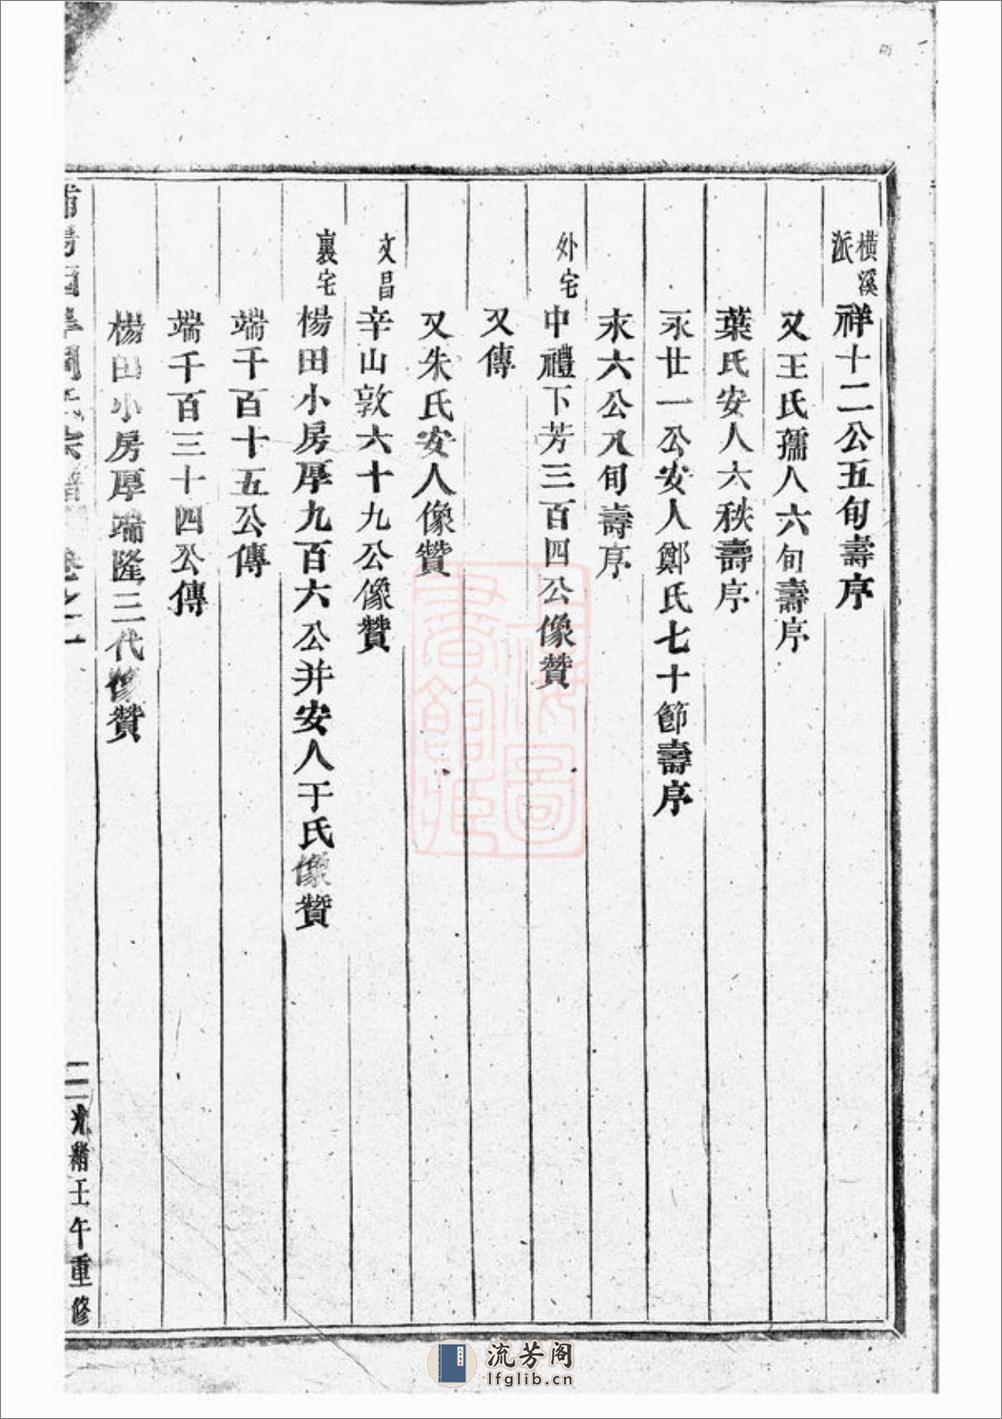 橫溪派
祥十二公五旬壽序
又王氏孺人六旬壽序
葉氏安人六秩壽序
永廿一公安人鄭氏七十節壽序
求六公八旬壽序
外宅
中禮下芳三百四公像贊
又傳
又朱氏安人像贊
文昌
辛山敦六十九公像贊
裏宅
楊田小房厚九百六公并安人于氏像贊
端千百十五公傳
端千百三十四公傳
楊田小房厚端隆三代像贊
周氏宗譜 卷之一
二 光緒壬午重修
上海圖書館藏
流芳阁
lfglib.cn